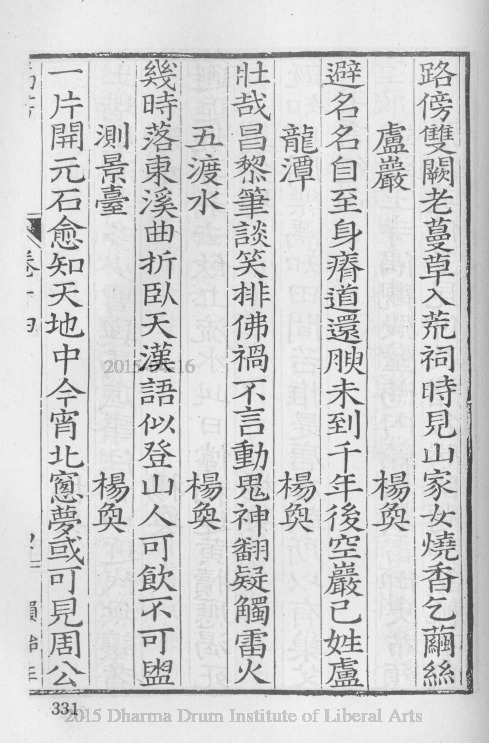 路傍雙闕老蔓草入荒祠時見山家女燒香乞繭絲
盧巖 楊奐
避名名自至身瘠道還腴未到千年後空巖已姓盧
龍潭 楊奐
壯哉昌黎筆談笑排佛禍不言動鬼神翻疑觸雷火
五渡水 楊奐
幾時落東溪曲折臥天漢語似登山人可飲不可盥
測景臺 楊奐
一片開元石愈知天地中今宵北窻夢或可見周公
卷十四
331
2015 Dharma Drum Institute of Liberal Arts